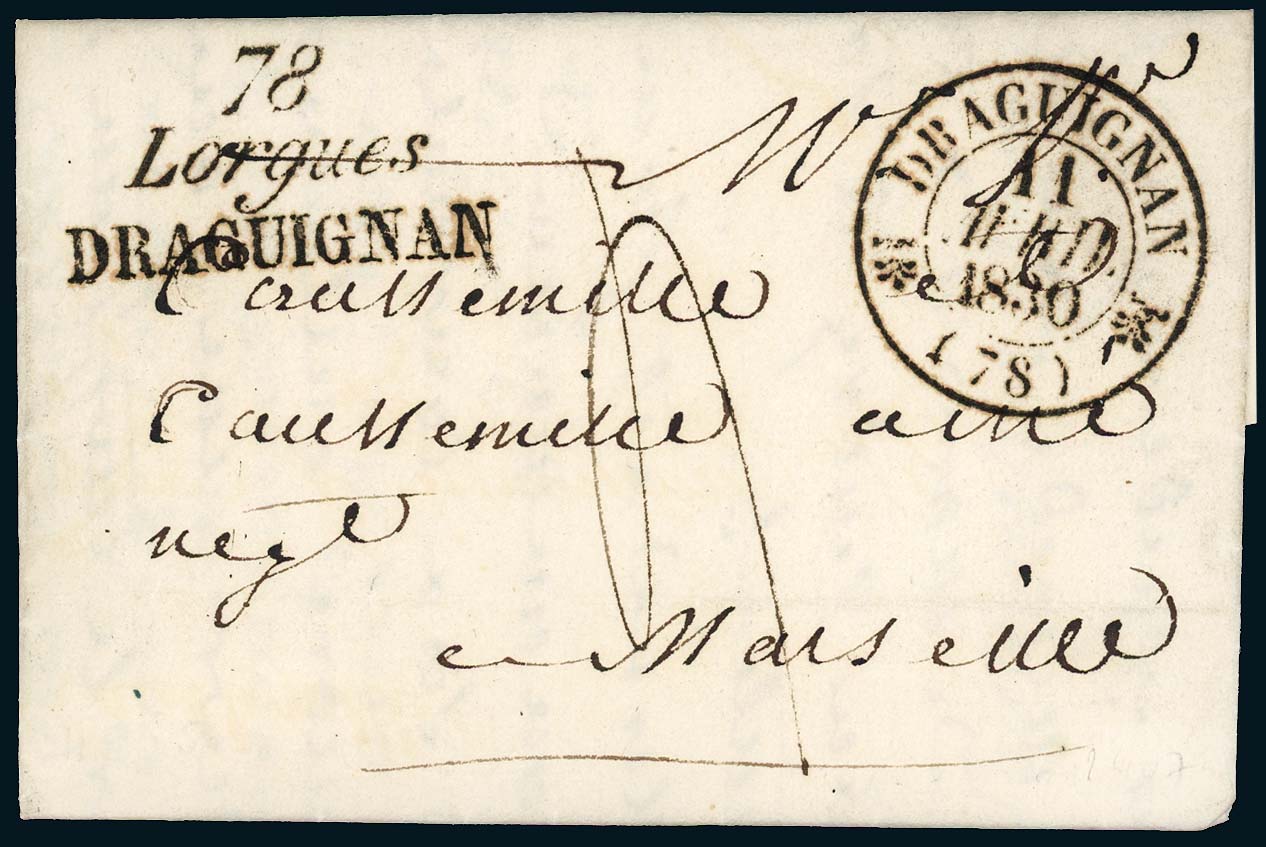 78
Lorgues
DRAGUIGNAN
DRAGUIGNAN
11
1830
(78)
Caussemille
Caussemille ainé
negt
a Marseille